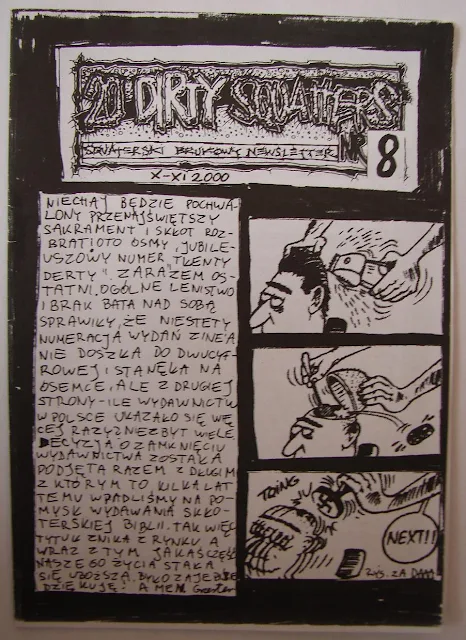 20 DIRTY SQUATTERS
SQUATERSKI BRUKOWY NEWSLETTER NR 8
X-XI 2000
NIECHAJ BĘDZIE POCHWA-
LONY PRZENAJŚWIĘTSZY
SAKRAMENT I SKŁOT ROZ-
BRAT! OTO ÓSMY, JUBILE-
USZOWY NUMER „TŁENTY
DERTY". ZARAZEM OS-
TATNI. OGÓLNE LENISTWO
I BRAK BATA NAD SOBĄ
SPRAWIŁY, ŻE NIESTETY
NUMERACJA WYDAŃ ZINE'A
NIE DOSZŁA DO DWUCYF-
ROWEJ I STANĘŁA NA
ÓSEMCE, ALE Z DRUGIEJ
STRONY - ILE WYDAWNICTW
W POLSCE UKAZAŁO SIĘ WIĘ
CEJ RAZY? NIEZBYT WIELE.
DECYZJA O ZAMKNIĘCIU
WYDAWNICTWA ZOSTAŁA
PODJĘTA RAZEM Z DRUGIM
Z KTÓRYM TO KILKA LAT
TEMU WPADLIŚMY NA PO-
MYSŁ WYDAWANIA SKŁO-
TERSKIEJ BIBLII. TAK WIĘC
TYTUŁ ZNIKA Z RYNKU, A
WRAZ Z TYM JAKAŚ CZĘŚĆ
NASZEGO ŻYCIA STAŁA
SIĘ UBOŻSZA. BYŁO ZAJEBIŚCIE
DZIĘKUJĘ! AMEN
TOING
NEXT!!
RYS. ZA